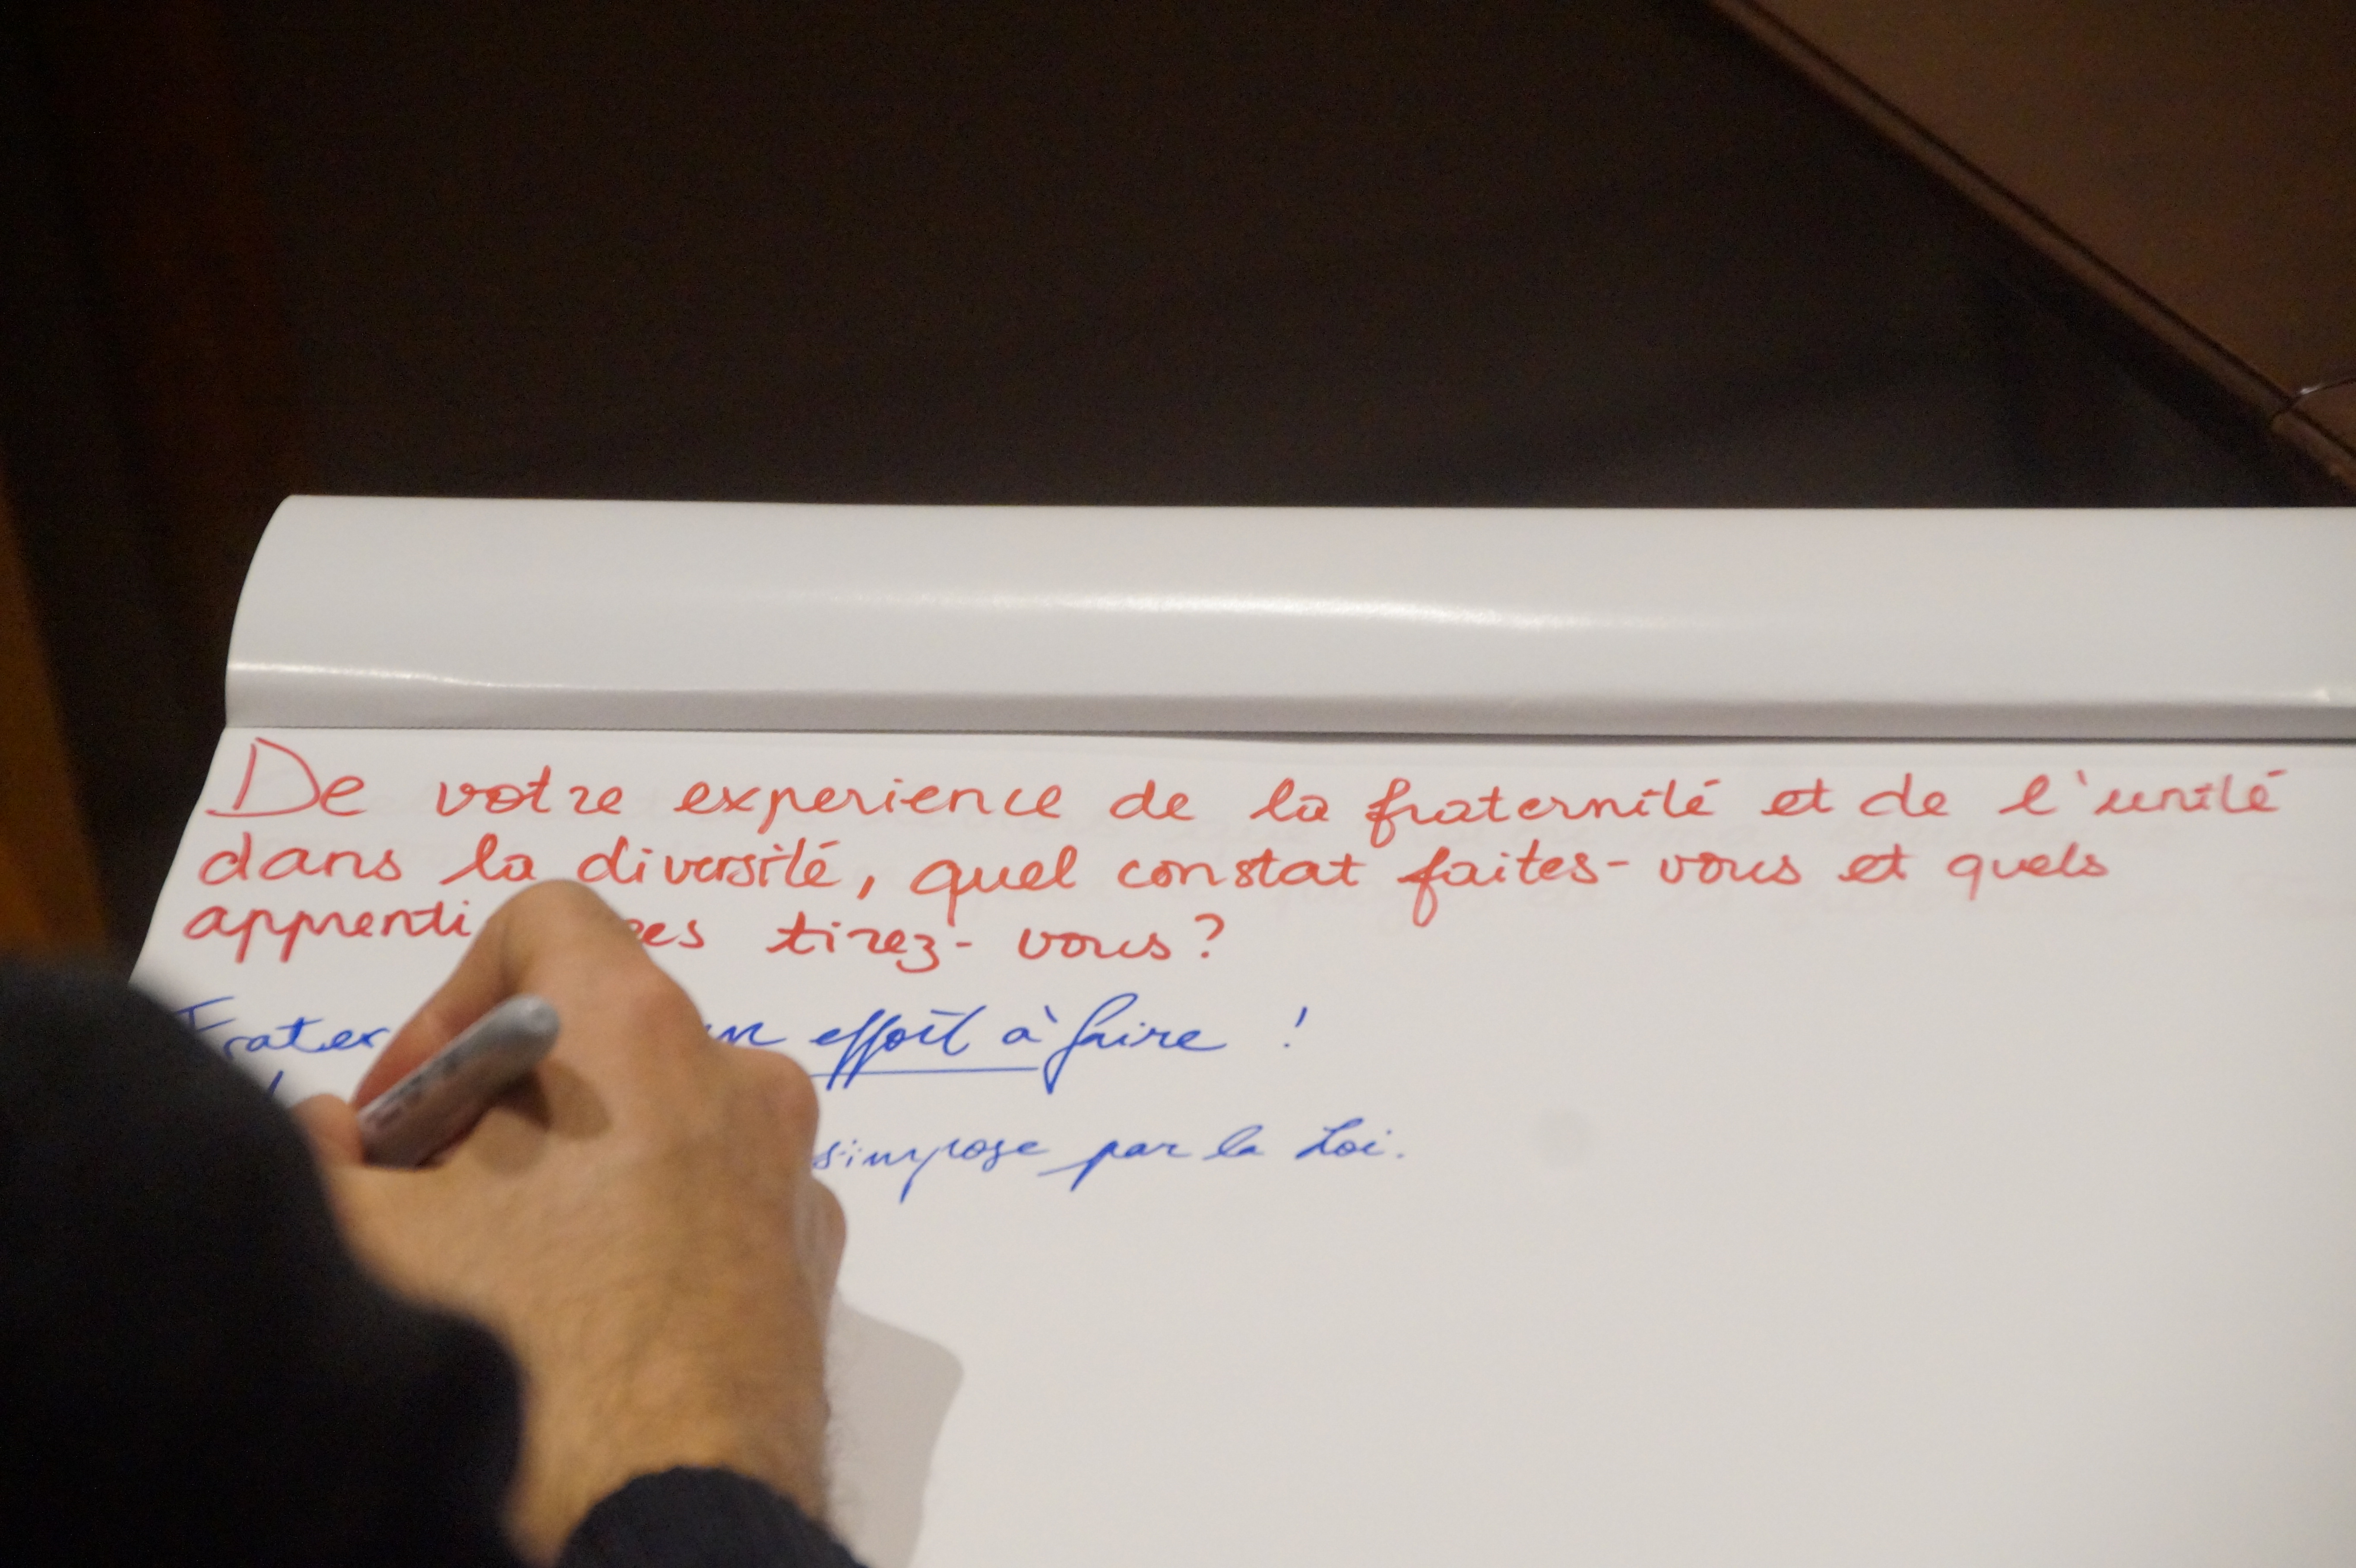 De votre experience de la fraternité et de l'unité
dans la diversité, quel constat faites-vous et quels
tirez-vous?
effort à faire !
s'impose par la Loi.